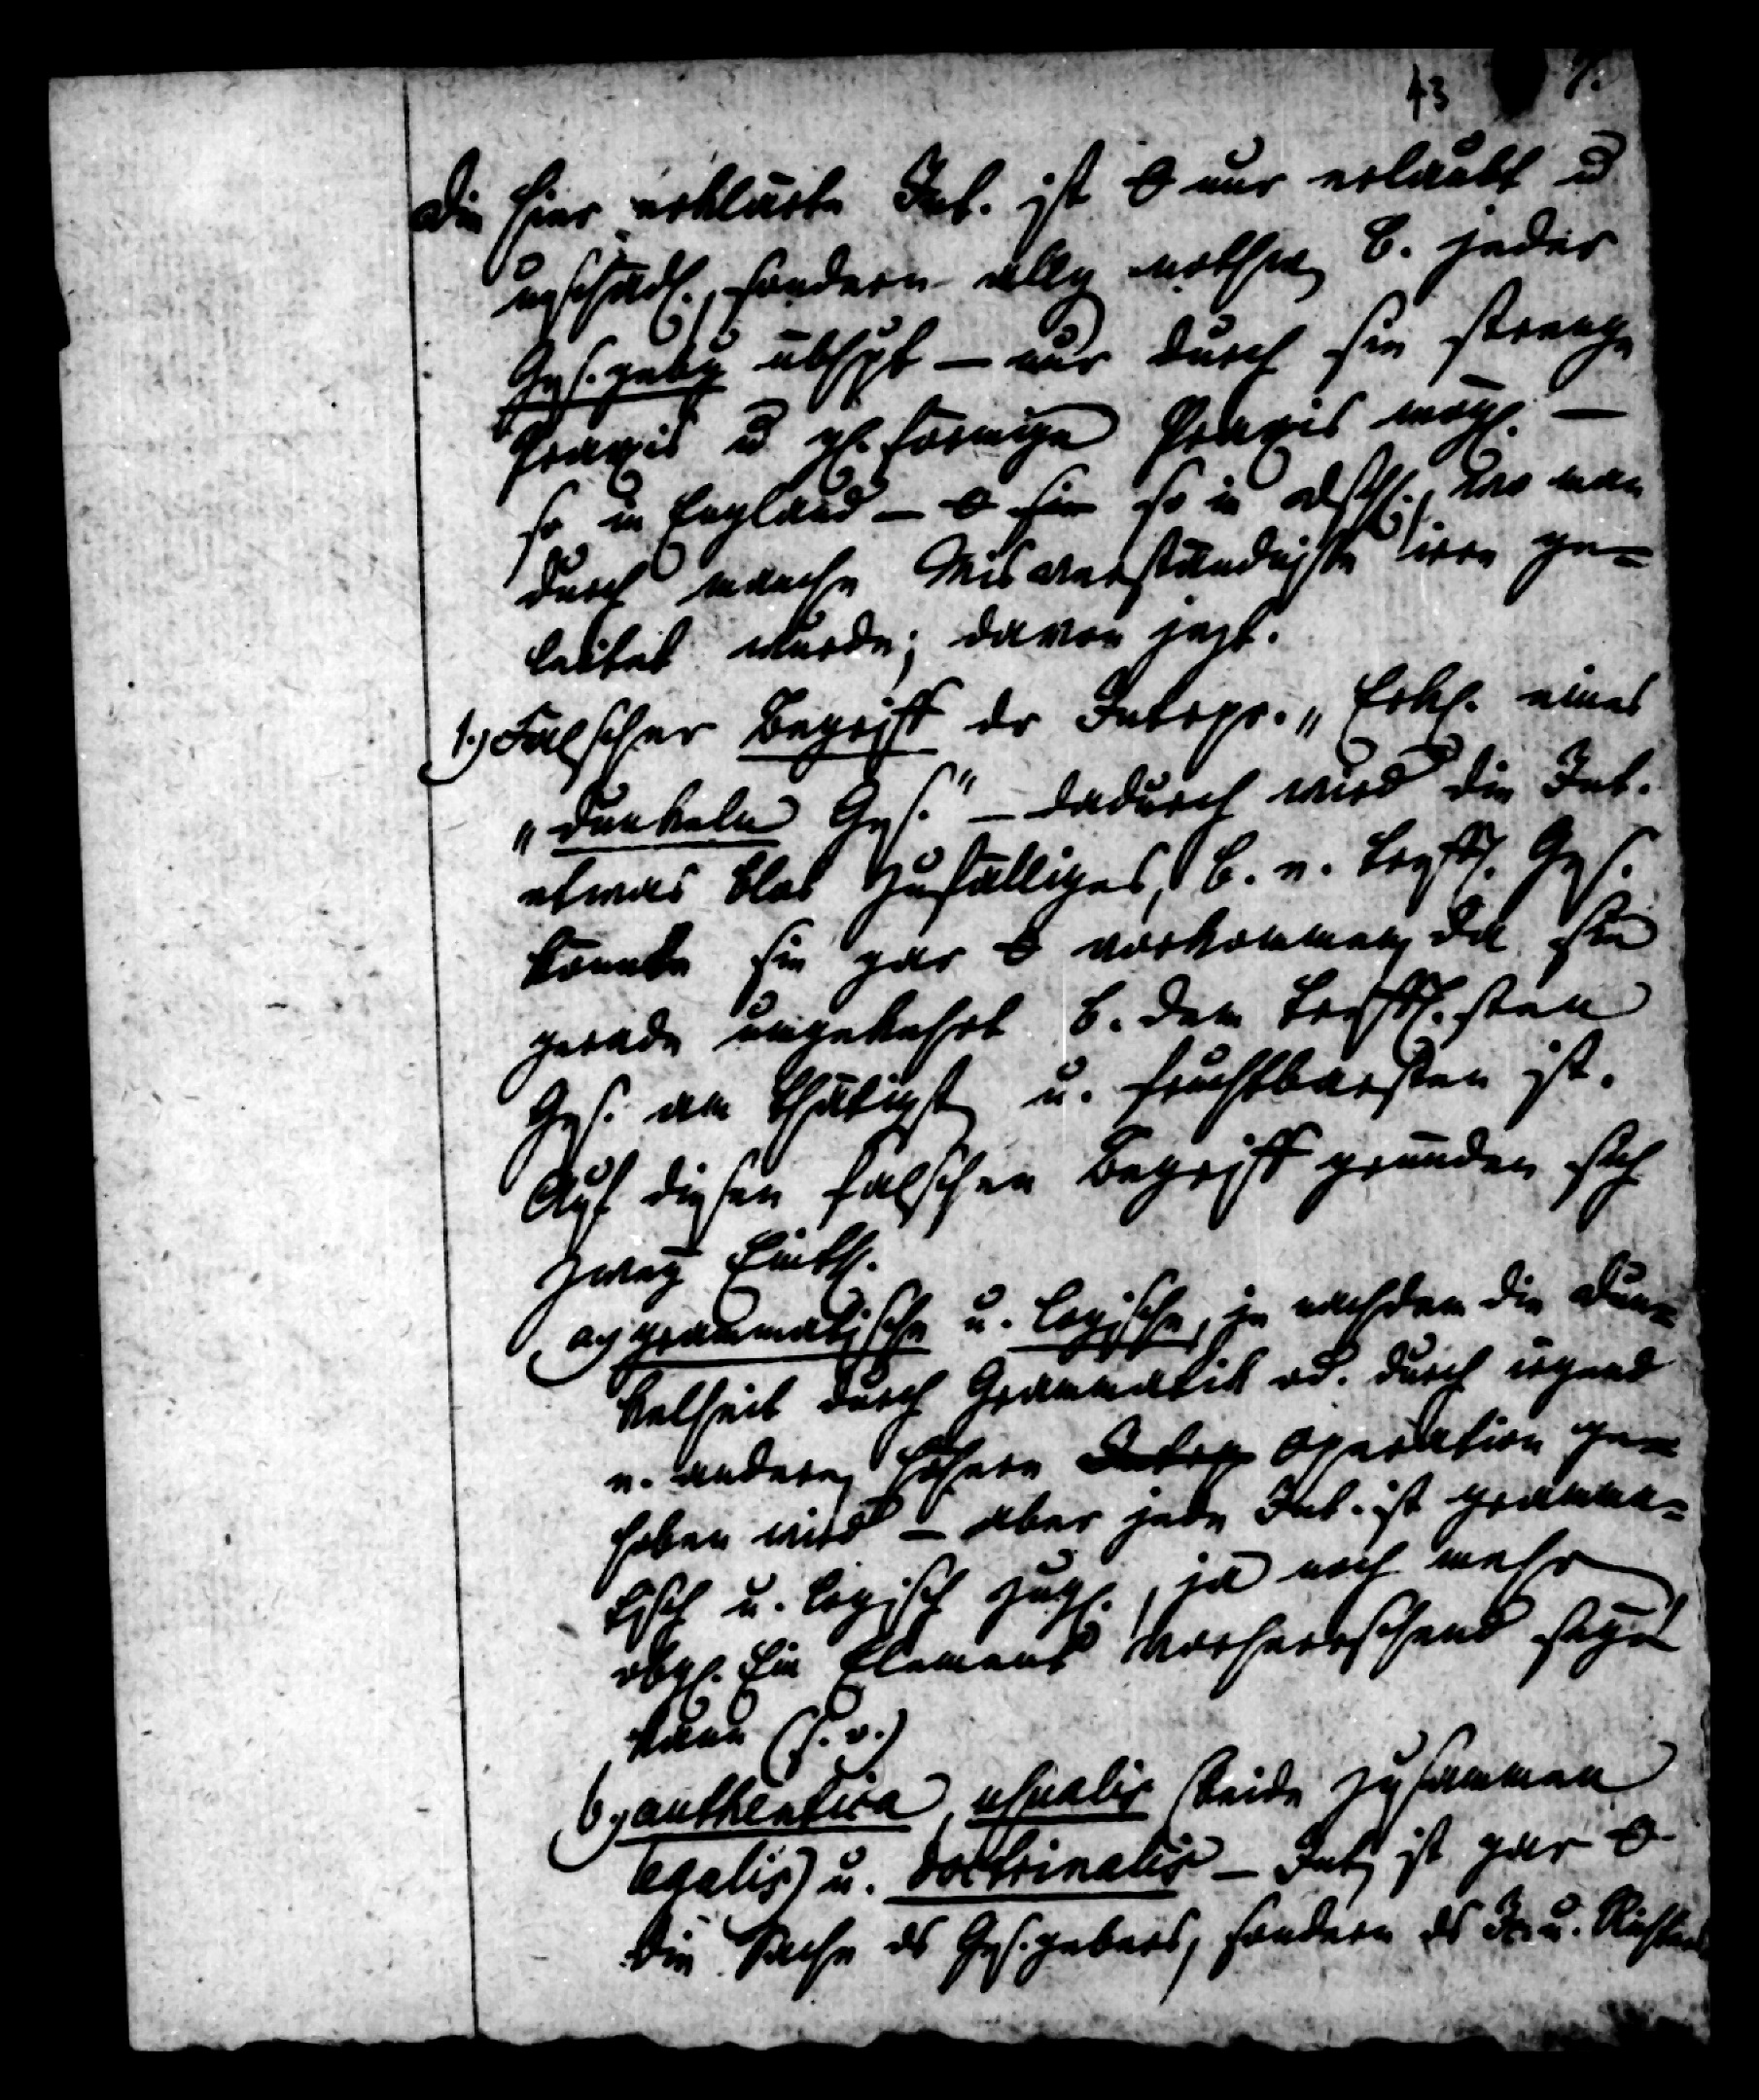 43
Die hier erklärte Int. ist 0 nur erlaubt u
unschädl., sondern allg nothw, b. jeder
Gesgebg übhpt – nur durch sie strenge
Praxis u gl. förmige Praxis mögl. –
so in England – 0 hier so in Dtschl., wo man
durch manche Misverständnisse irre ge=
leitet wurde; davon jezt.
1.) Falscher Begriff der Interpr. „Erkl. eines
„dunkeln Ges." – dadurch wird die Int.
etwas blos zufälliges, b. e. treffl. Ges.
könnte sie gar 0 vorkommen, da sie
gerade umgekehrt b. dem treffl.sten
Ges. am thätigst, u. fruchtbarsten ist.
Auf diesen falschen Begriff gründen sich
zwey Einth.
a.) grammatische u. logische, je nachdem die Dun=
kelheit durch Grammatik od. durch irgend
e. andere, höhere Interp Operation ge=
hoben wird – aber jede Int. ist gramma=
tisch u. logisch zugl., ja noch mehr
obgl. Ein Element vorherrschend seyn
kann (s. o.)
b.) authentica, usualis (beide zusammen
legalis) u. doctrinalis – Int, ist gar 0
die Sache ds Ges.gebers, sondern ds Ju. Richters